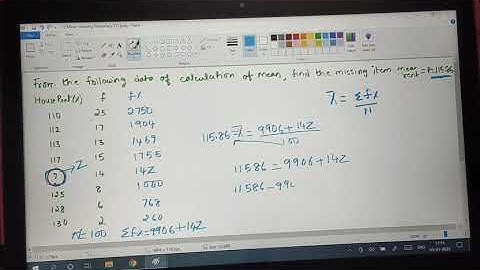 From the following data of calculation of mean, find the missing item mean rent = ₹115.86
House Rent(x) f fx
110 25 2750
112 17 1904
113 13 1469
117 15 1755
? Z 14 14Z
125 8 1000
128 6 768
130 2 260
N=100 Σfx=9906+14Z
x̄ = Σfx
N
115.86 = x̄ = 9906+14Z
100
11586 = 9906+14Z
11586-990